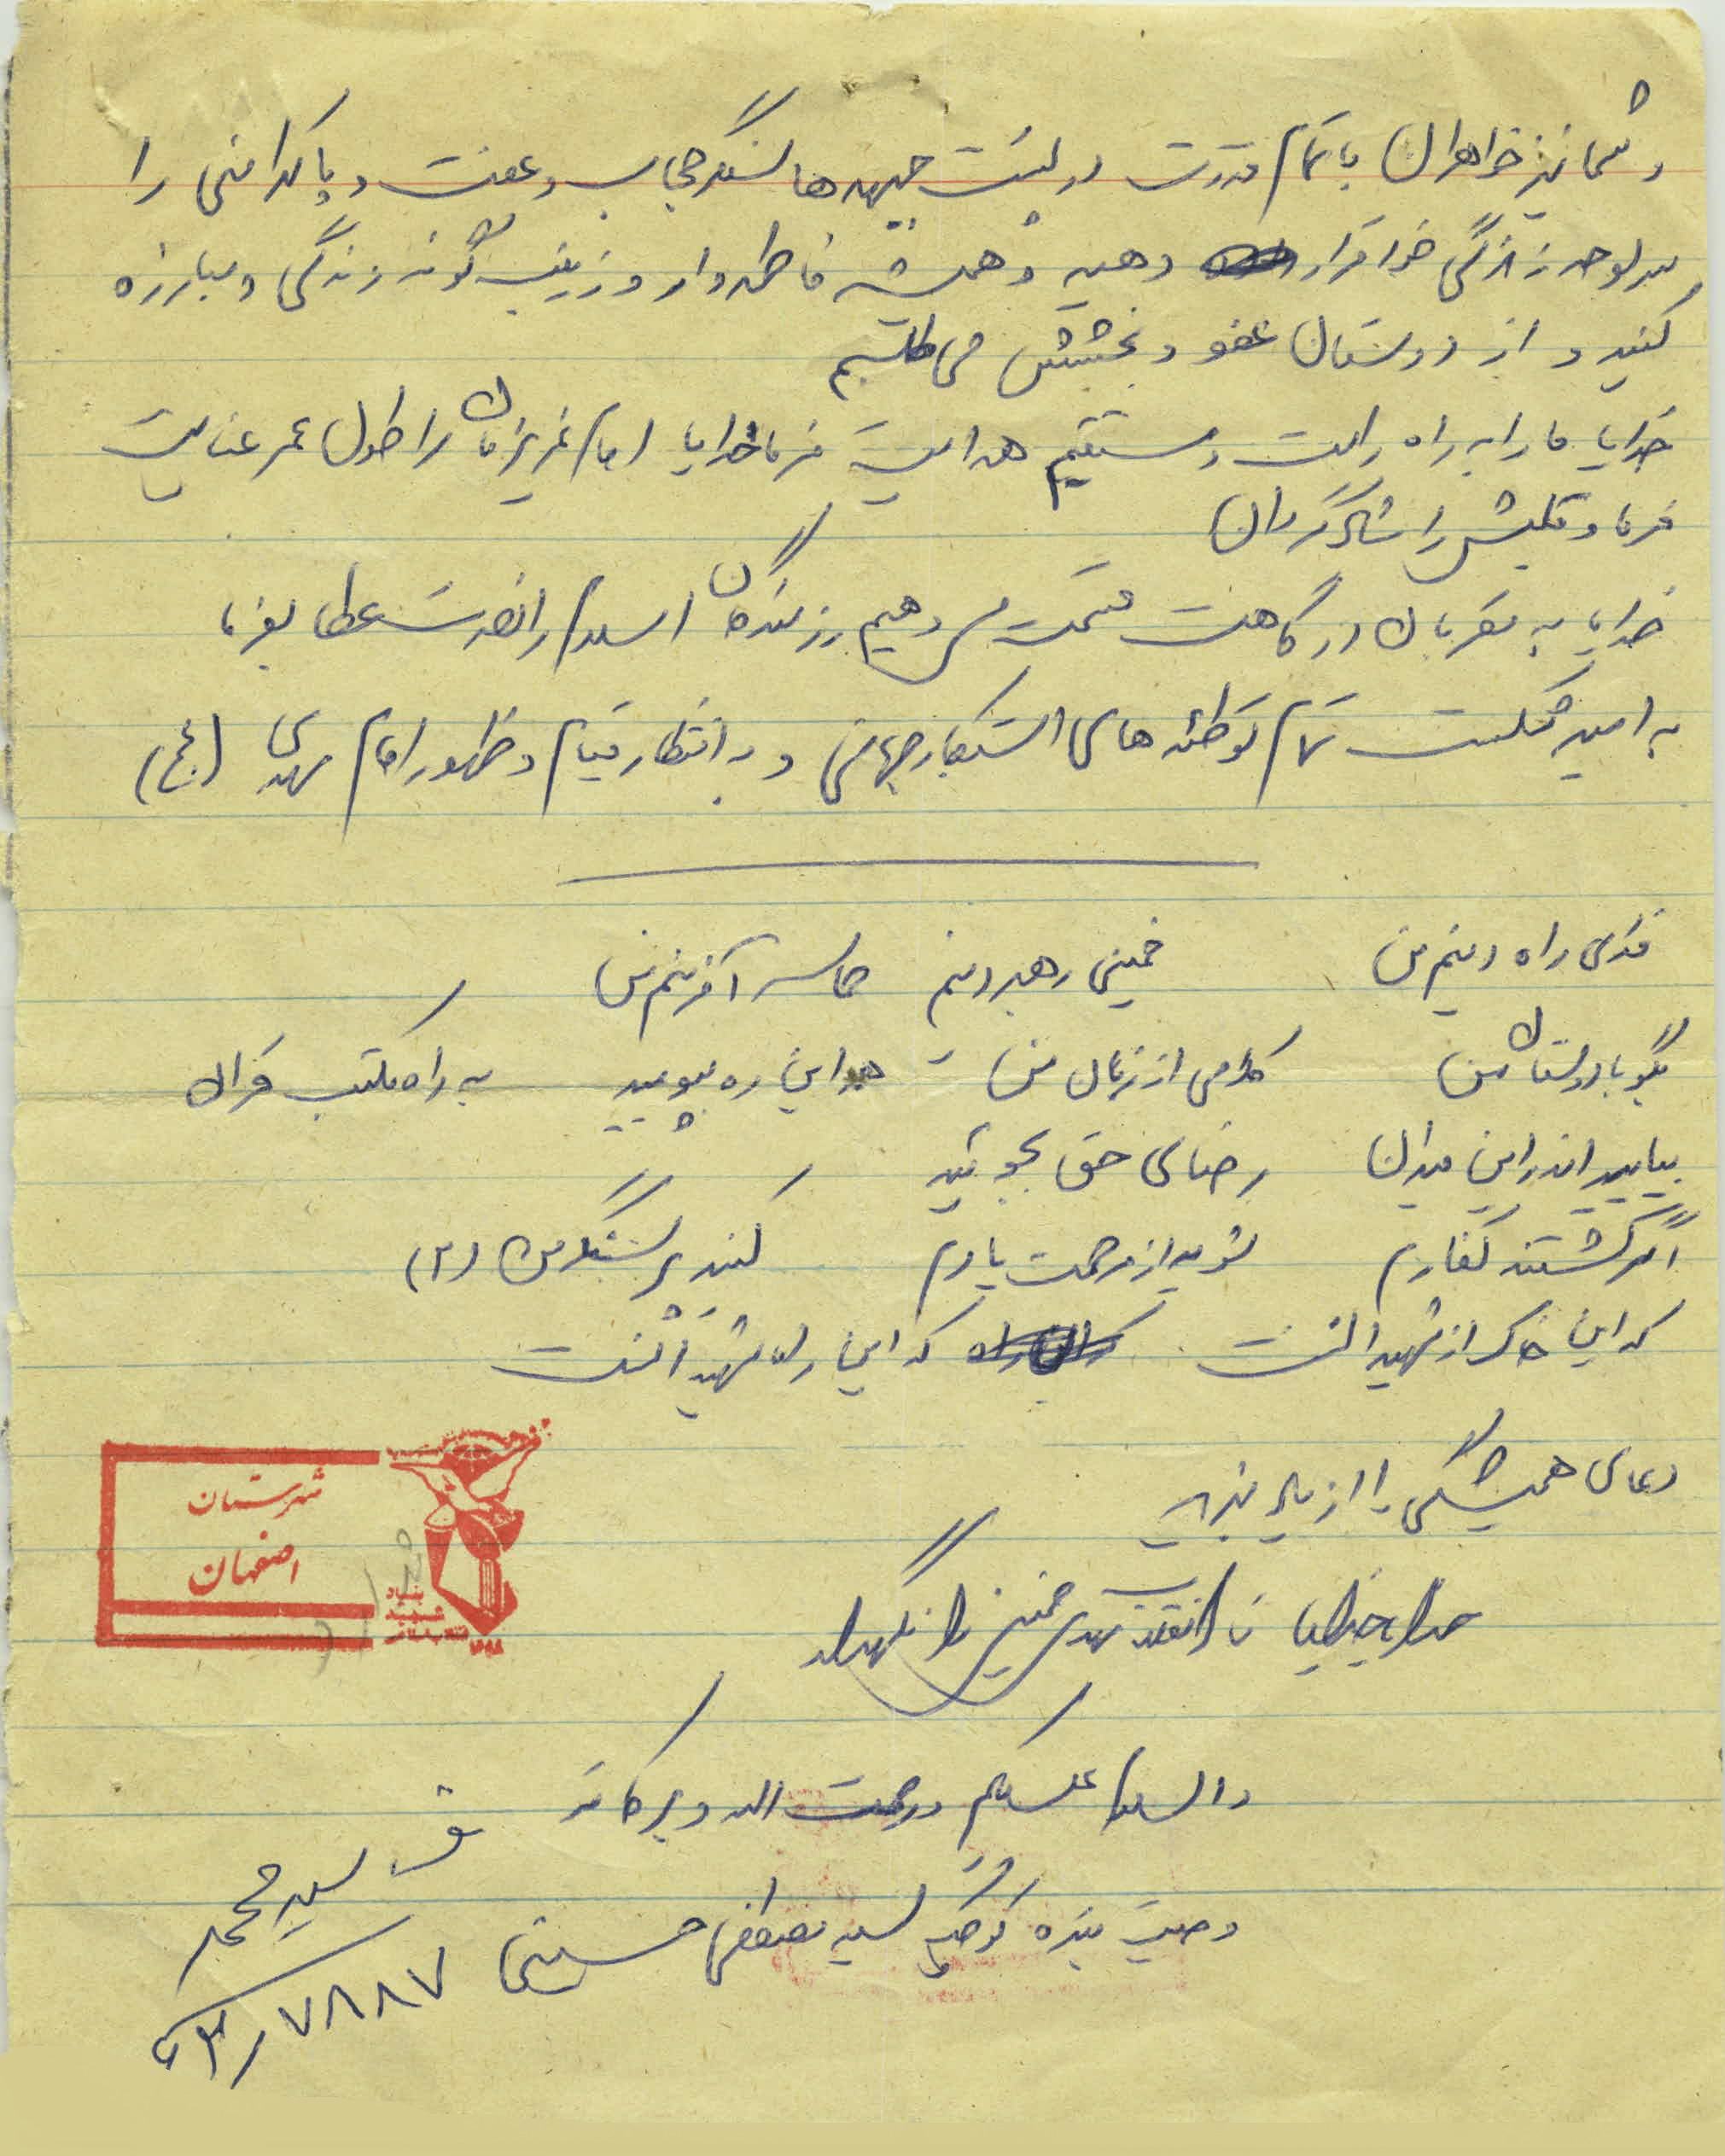 و شما نیز خواهران با تمام قدرت در پشت جبهه ها سنگر حجاب و عفت و پاکدامنی را
سرلوحه زندگی خود قرار دهید و همیشه فاطمه وار و زینب گونه زندگی و مبارزه
کنید و از دوستان عفو و بخشش می طلبم
خدایا ما را به راه راست و مستقیم هدایت فرما خدایا امام عزیزمان را طول عمر عنایت
فرما و قلبش را شاد گردان
خدایا به مقربان درگاهت قسمت می دهیم رزمندگان اسلام را نصرت عطا بفرما
به امید شکست تمام توطئه های استکبار جهانی و به انتظار قیام و ظهور امام مهدی (عج)
فدای راه دینم من خمینی رهبر دینم حماسه آفرینم من
بگو با دوستان من کلامی از زبان من هد این ره بپویید به راه مکتب قرآن
بیایید اندر این میدان رضای حق بجوئید
اگر کشتند کفارم شوید از مرحمت یارم کنید پر سنگر من (۲)
که این خاک از شهیدانست که این راه شهیدانست
دعای همیشگی را از یاد نبرید
خدایا خدایا تا انقلاب مهدی خمینی را نگهدار
والسلام علیکم و رحمت الله و برکاته
وصیت بنده کوچک سید مصطفی حسینی
سید محمد
۷۸۸۷
شهرستان
اصفهان
بنیاد
شهید